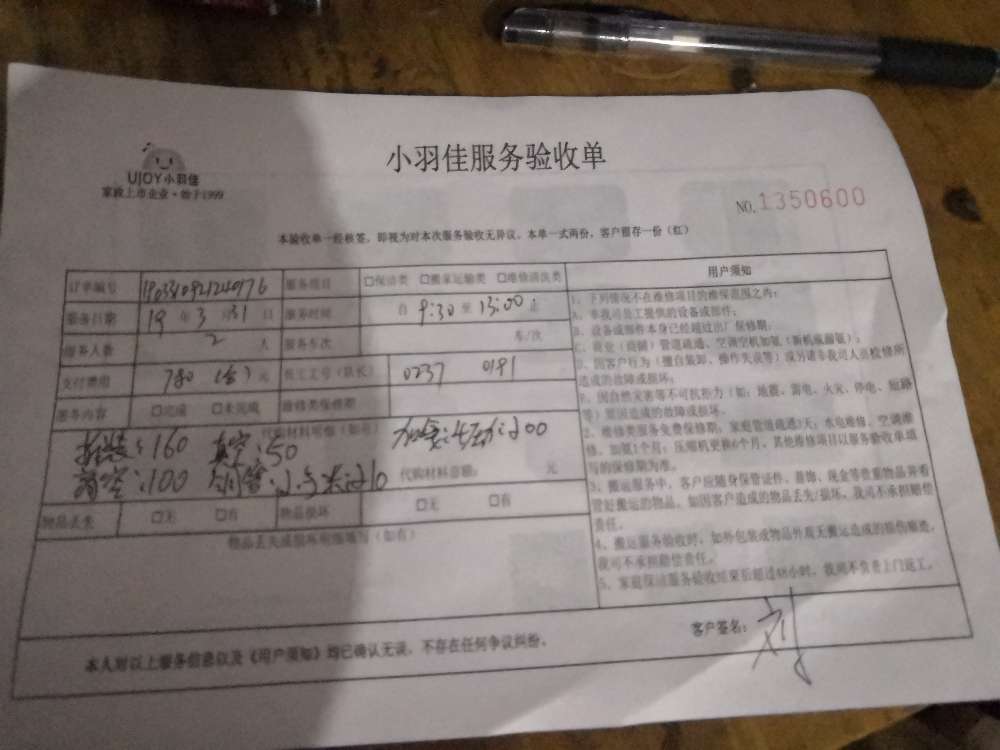 UJOY小羽佳
家政上市企业·始于1999
小羽佳服务验收单
NO.1350600
本验收单一经核签，即视为对本次服务验收无异议。本单一式两份，客户留存一份（红）
订单编号 服务项目 □保洁类 □搬家运输类 □维修清洗类
服务日期 19 年 3 月 31 日 服务时间 自 9:30 至 13:00 止
服务人数 2 人 服务车次 车/次
支付费用 780 元 员工工号（队长） 0237 0191
服务内容 □完成 □未完成 维修类保修期
代购材料明细（如有）
拆装：160 真空：50
高空：100
代购材料总额： 元
物品丢失 □无 □有 物品损坏 □无 □有
物品丢失或损坏明细填写（如有）
用户须知
1、下列情况不在维修项目的维保范围之内：
A、非我司员工提供的设备或部件；
B、设备或部件本身已经超过出厂保修期；
C、商业（商铺）管道疏通、空调空机加氨（新机或漏氨）；
D、因客户行为（擅自装卸、操作失误等）或另请非我司人员检修所
造成的故障或损坏；
E、因自然灾害等不可抗拒力（如：地震、雷电、火灾、停电、短路
等）原因造成的故障或损坏。
2、维修类服务免费保修期：家庭管道疏通3天；水电维修、空调维
修、加氨1个月；压缩机更换6个月。其他维修项目以服务验收单填
写的保修期为准。
3、搬运服务中，客户应随身保管证件、首饰、现金等贵重物品并看
管好搬运的物品。如因客户造成的物品丢失/损坏，我司不承担赔偿
责任。
4、搬运服务验收时，如外包装或物品外观无搬运造成的损伤痕迹，
我司不承担赔偿责任。
5、家庭保洁服务验收结束后超过48小时，我司不负责上门返工。
本人对以上服务信息以及《用户须知》均已确认无误，不存在任何争议纠纷。
客户签名： 刘